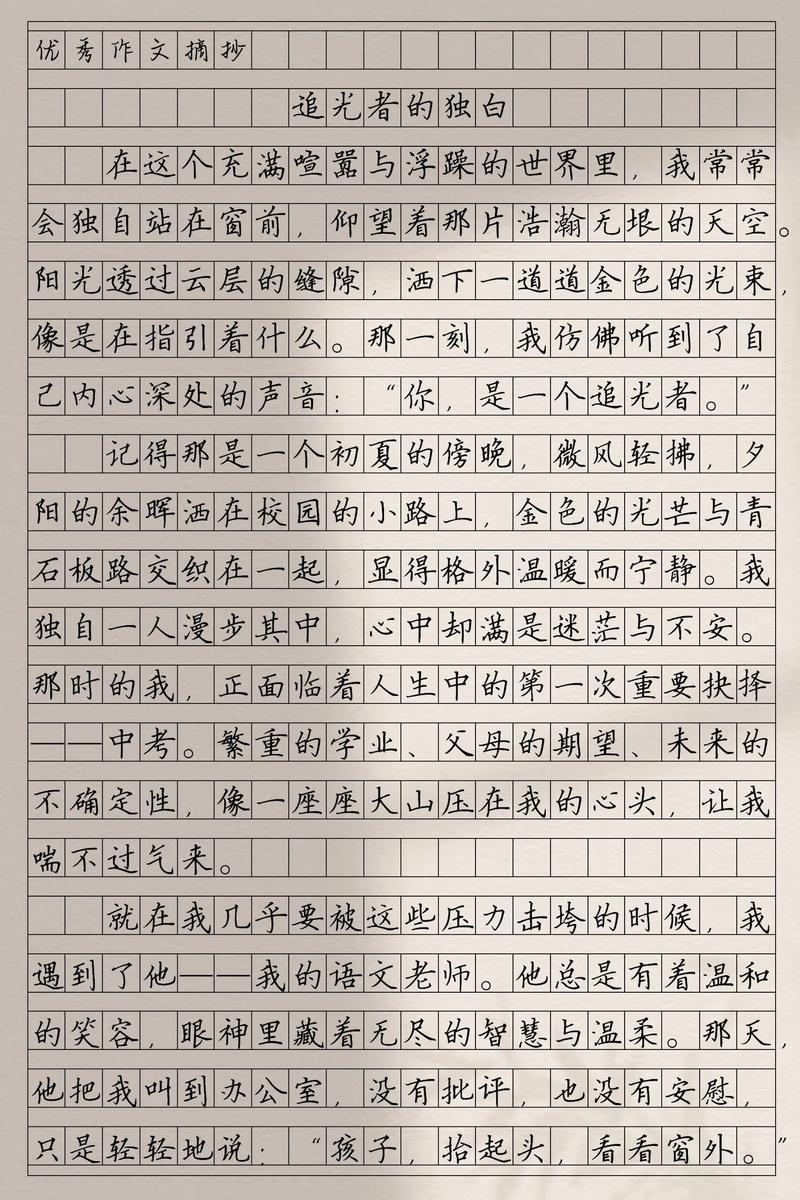 优秀作文摘抄
追光者的独白
在这个充满喧嚣与浮躁的世界里，我常常
会独自站在窗前，仰望着那片浩瀚无垠的天空。
阳光透过云层的缝隙，洒下一道道金色的光束，
像是在指引着什么。那一刻，我仿佛听到了自
己内心深处的声音：“你，是一个追光者。”
记得那是一个初夏的傍晚，微风轻拂，夕
阳的余晖洒在校园的小路上，金色的光芒与青
石板路交织在一起，显得格外温暖而宁静。我
独自一人漫步其中，心中却满是迷茫与不安。
那时的我，正面临着人生中的第一次重要抉择
——中考。繁重的学业、父母的期望、未来的
不确定性，像一座座大山压在我的心头，让我
喘不过气来。
就在我几乎要被这些压力击垮的时候，我
遇到了他——我的语文老师。他总是有着温和
的笑容，眼神里藏着无尽的智慧与温柔。那天，
他把我叫到办公室，没有批评，也没有安慰，
只是轻轻地说：“孩子，抬起头，看看窗外。”